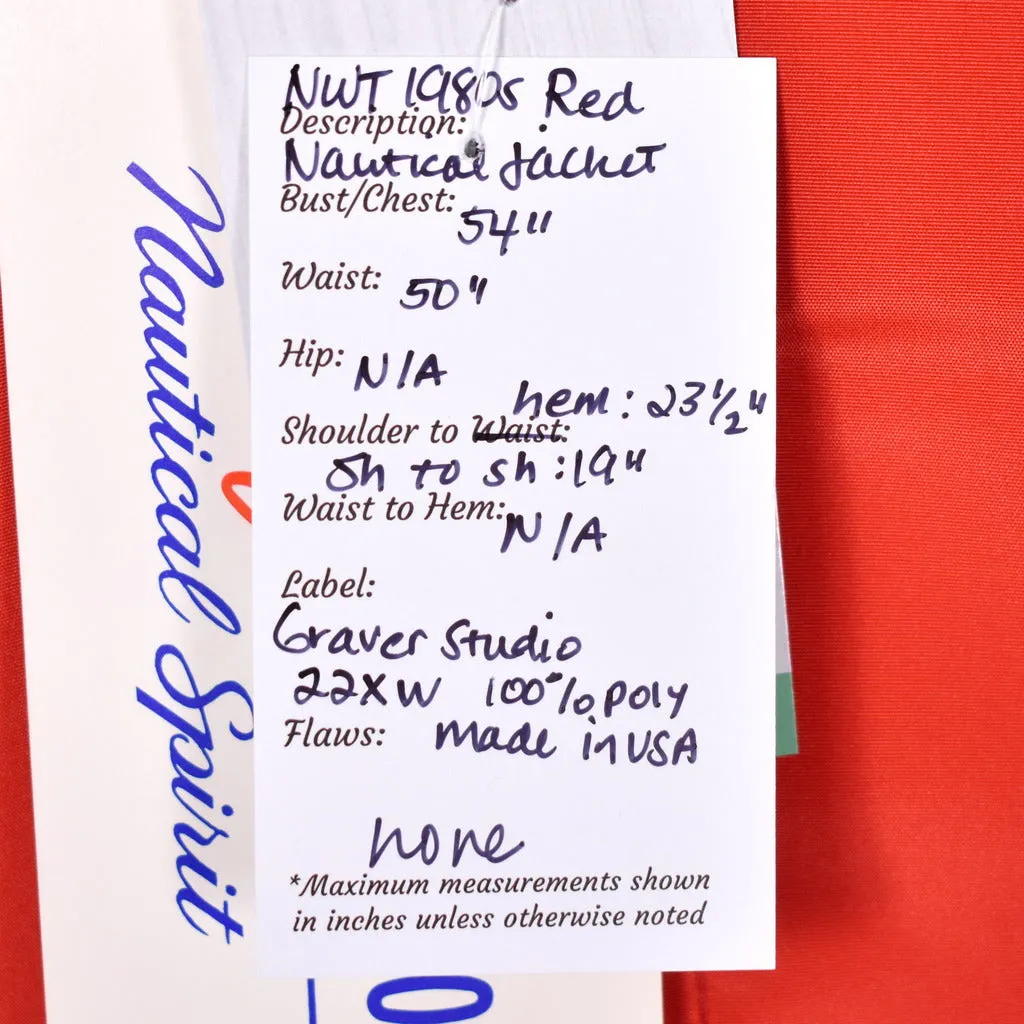 NWT 1980s Red
Description:
Nautical Jacket
Bust/Chest:
54"
Waist: 50"
Hip: N/A
hem: 23 1/2"
Shoulder to Waist:
Sh to sh: 19"
Waist to Hem: N/A
Label:
Graver Studio
22XW 100% poly
Flaws: made in USA
none
*Maximum measurements shown
in inches unless otherwise noted
Nautical Spirit